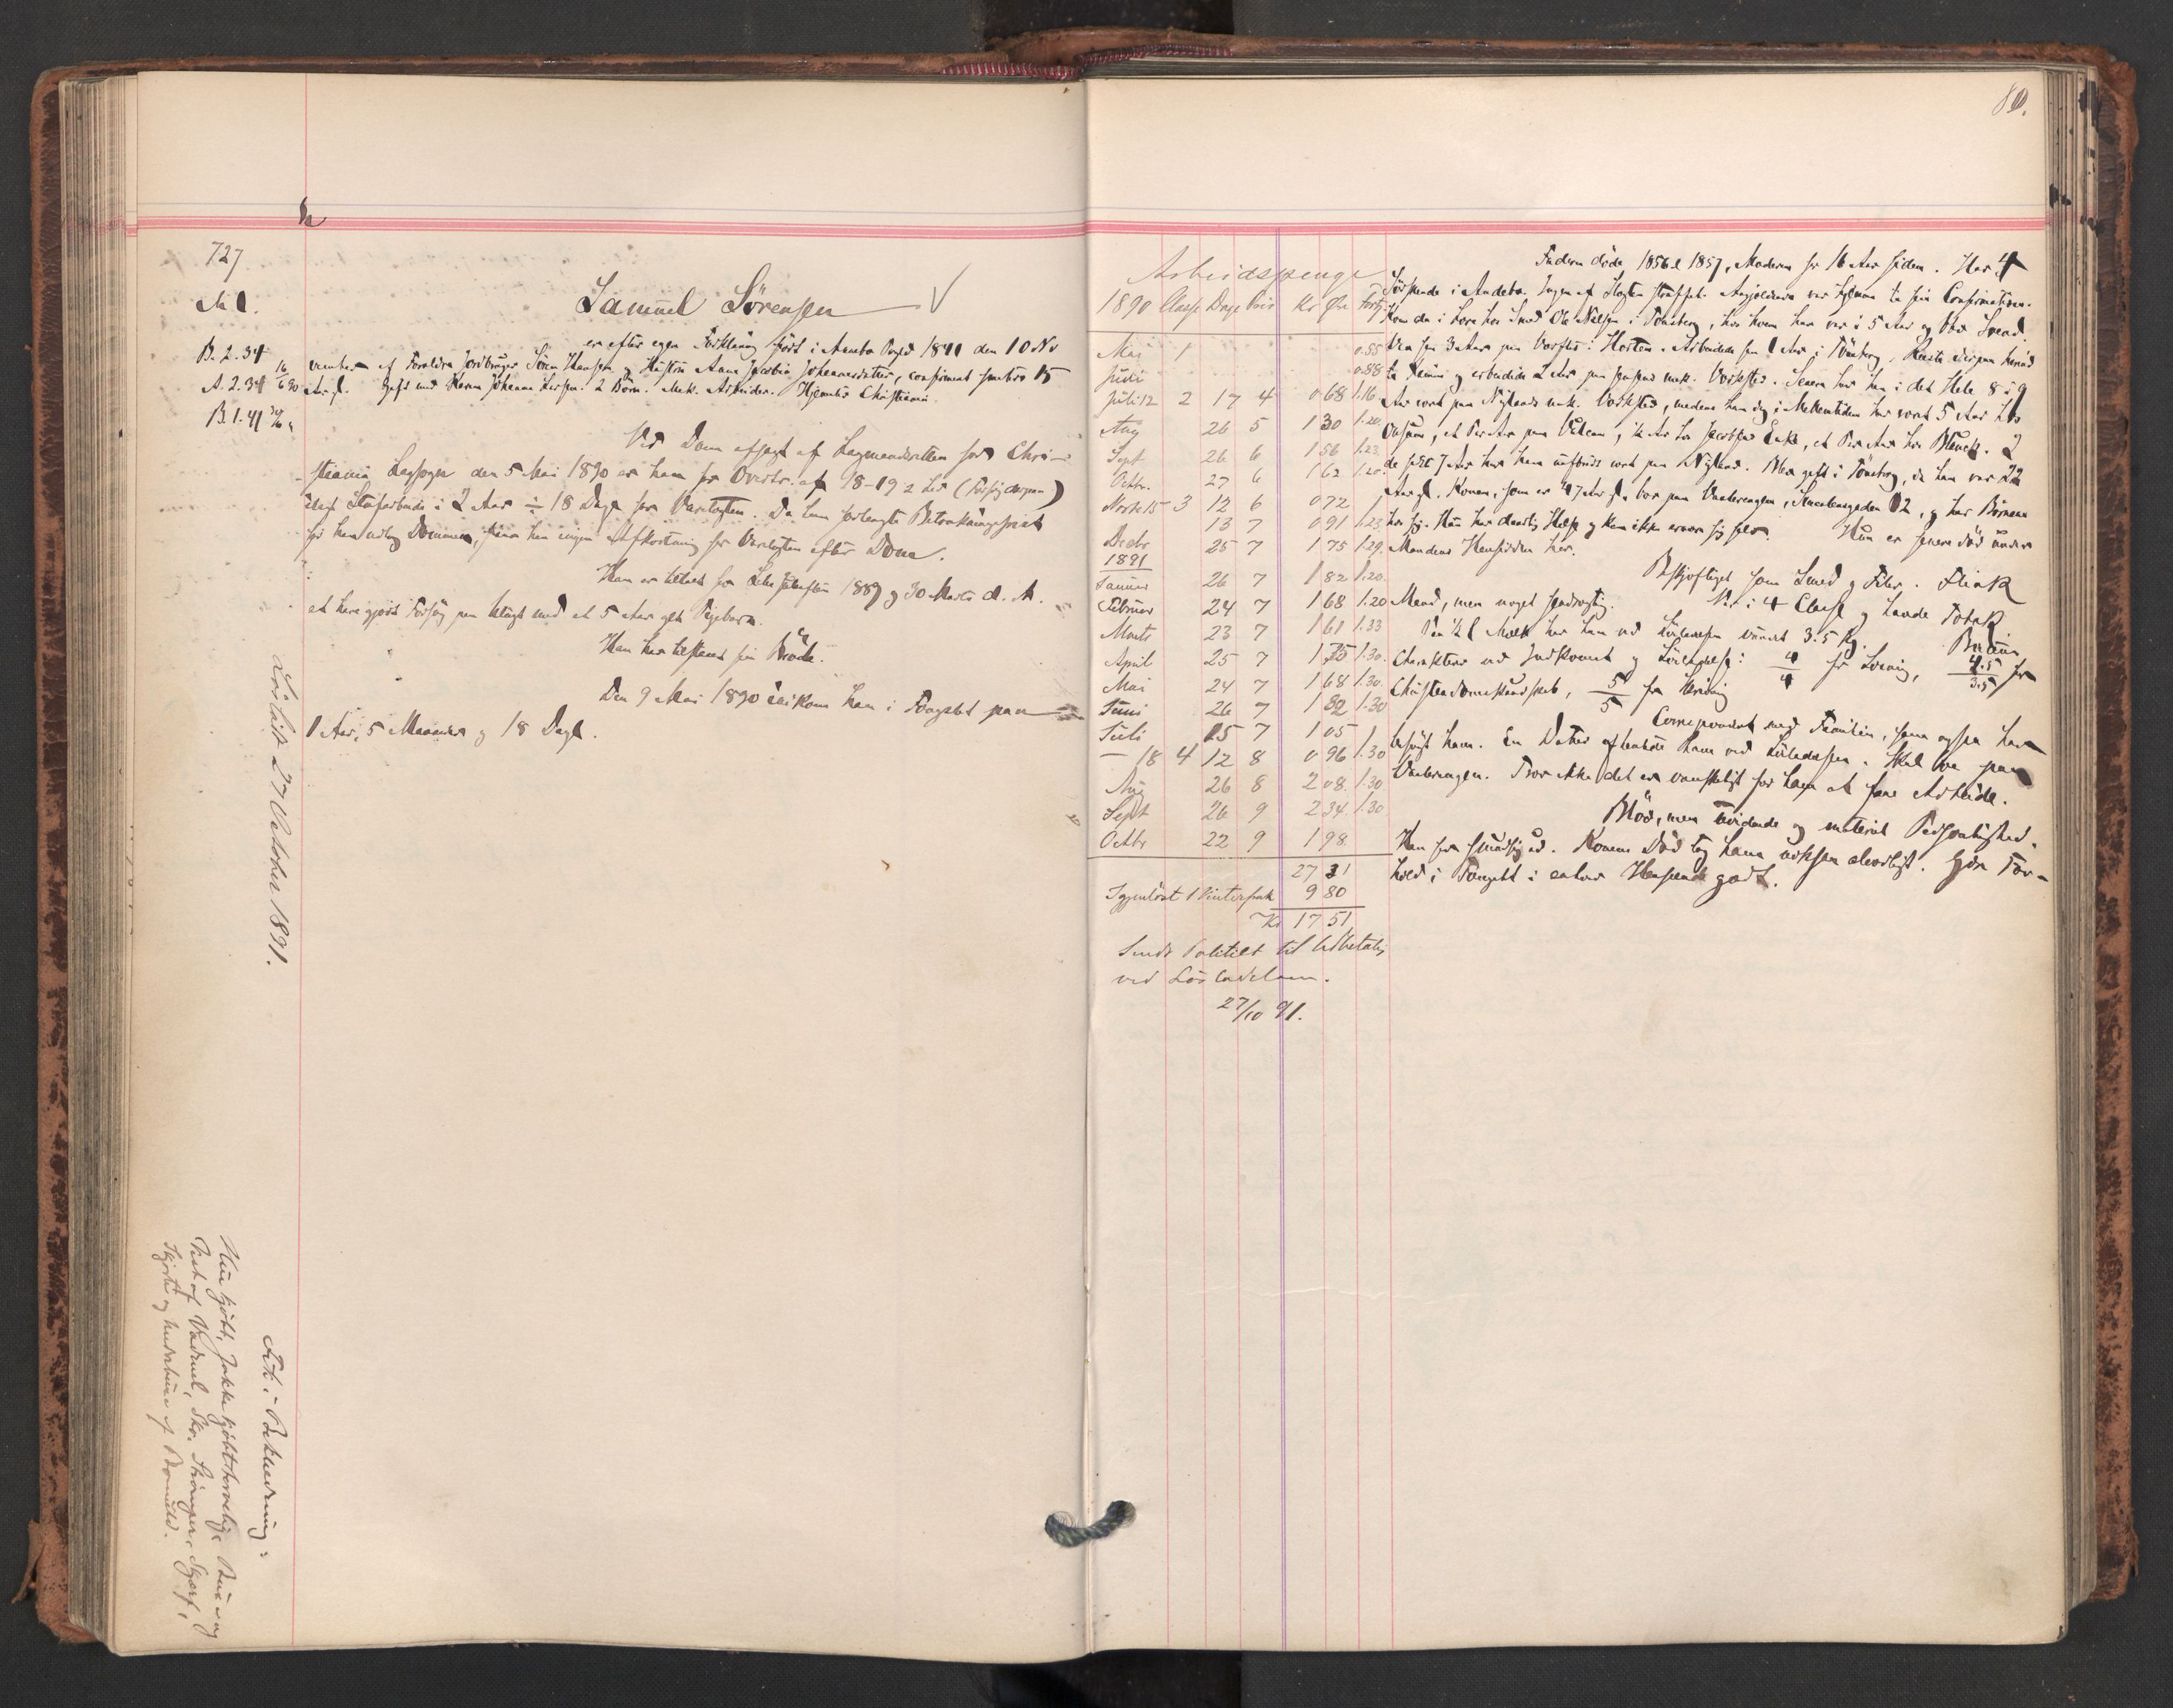 80.
727
No 1.
B. 2. 34
A. 2. 34 16/6 90
B. 1. 41
Løsladt 27 October 1891.
Samuel Sörensen √
er efter egen Forklaring født i Andebo Sogn 1841 den 10 No
vember af Forældre Jordbruger Sören Hansen og Hustru Anne Jacobine Johannesdatter, confirmeret 15
Aar gl. Gift med Karen Johanne Larsen. 2 Børn. Mek. Arbeider. Hjemsted Christiania.
Ved Dom afsagt af Lagmandsretten for Chri-
stiania Lagsogn den 5 Mai 1890 er han for Overtr. af 18-19 2 Led (Forsøg derpaa)
idømt Strafarbeide i 2 Aar ÷ 18 Dage for Varetægten. Da han forlangte Betænkningsfrist
før han vedtog Dommen, faar han ingen Afkortning for Varetægten efter Dom.
Han er tiltalt for Juleaften 1889 og 30 Marts d. A.
at have gjort Forsøg paa Utugt med et 5 Aar gl. Pigebarn.
Han har tilstaaet sin Brøde.
Den 9 Mai 1890 indkom han i Fængslet paa
1 Aar, 5 Maaneder og 18 Dage.
Beklædning:
Hue kjøbt, Jakke kjøbt Buxe og
Vest af Vadmel, Sko, Strømper, Skjærf,
Skjorte og Underbuxe af Bomuld.
Arbeidspenge
1890 Classe Dage Pris Kr Øre
Mai 1 0.55
Juni 0.88
Juli 12 2 17 4 0 68 1.16
Aug 26 5 1 30 1.20.
Sept 26 6 1 56 1.23.
Octbr. 27 6 1 62
Novbr 15 3 12 6 0 72
13 7 0 91 1.23
Decbr 25 7 1 75 1.29.
1891
Januar 26 7 1 82 1.20.
Februar 24 7 1 68 1.20
Marts 23 7 1 61 1.33
April 25 7 1 75 1.30.
Mai 24 7 1 68 1.30.
Juni 26 7 1 82 1.30
Juli 15 7 1 05
— 18 4 12 8 0 96 1.30
Aug 26 8 2 08. 1.30
Sept 26 9 2 34. 1.30.
Octbr 22 9 1 98
27 31
Igjenløst 1 Vinterfrak 9 80
Kr 17 51
Sendt Politiet til Udbetaling
ved Løsladelsen.
27/10 91.
Faderen døde 1856 l 1857, Moderen for 16 Aar siden. Har 4
Sødskende i Andebo. Ingen af Slægten straffet. Angjældende var hjemme til sin Confirmation.
Kom da i Lære hos Smed Ole Nielsen i Tønsberg, hos hvem han var i 5 Aar og blev Svend.
Var saa 3 Aar paa Værftet i Horten. Arbeidede saa 1 Aar i Tønsberg, Reiste derpaa herind
til Byen og arbeidede 2 Aar paa mek. Værksted. Senere har han i det Hele 8 à 9
Aar vært paa Nylands mek. Værksted, medens han dog i Mellemtiden har vært 5 Aar hos
Onsum, et Par Aar paa Vulcan, ½ Aar hos Jacobsen Eeke, et Par Aar hos Blunck. I
de sidste 7 Aar har han uafbrudt vært paa Nyland. Blev gift i Tønsberg, da han var 22
Aar gl. Konen, som er 47 Aar gl. bor paa Vaalerengen, 12, og har Børnene
hos sig. Hun har daarlig Helse og kan ikke ernære sig selv. Hun er senere død under
Mandens Hensidden her.
Beskjæftiget som Smed og Filer. Flink
Mand, men noget sendrægtig. Var i 4 Classe og havde Tobak.
Paa ½ l Melk har han ved Løsladelsen vundet 3.5 kg.
Charakter ved Indkomst og Løsladelse: 4/4 for Læsning, 4.5/3.5 for
Christendomskundskab, 5/5 for Skrivning
Correspondent med Familien, som ogsaa har
besøgt ham. En Datter afhentede ham ved Løsladelsen. Skal bo paa
Vaalerengen. Tror ikke det er vanskeligt for ham at faae Arbeide.
Blød, men vidende og materiel Personlighed.
Han saa smudsig ud. Konens Død tog ham noksaa alvorligt. Hans For-
hold i Fængslet i enhver Henseende godt.